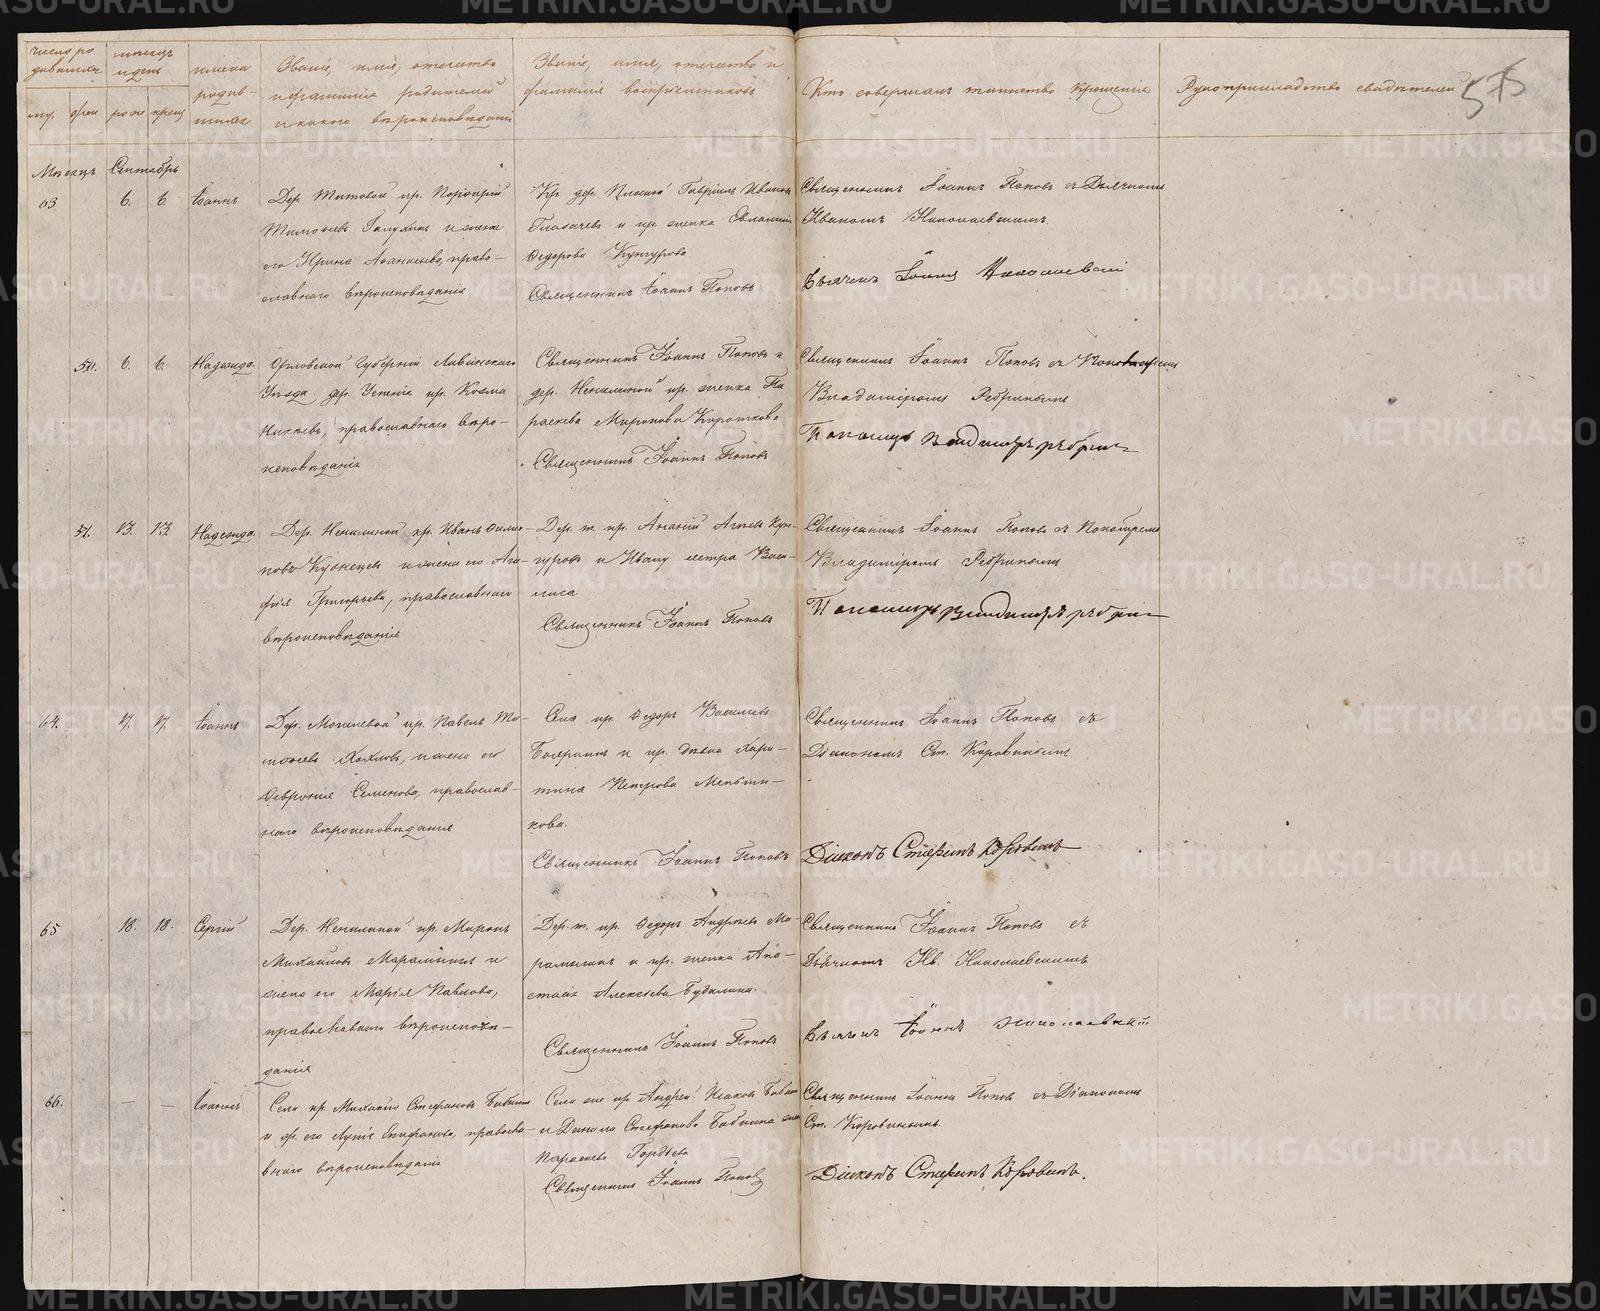 METRIKI.GASO-URAL.RU
число ро
дившихся
месяцъ
и день
имена
родив-
шихся
Званіе, имя, отчество
и фамилія родителей
и какого вѣроисповѣданія
Званіе, имя, отчество и
фамилія воспріемниковъ
Кто совершалъ таинство крещенія
Рукоприкладство свидѣтелей
575
Мѣсяцъ Сентябрь
63
6. 6.
Іоаннъ
Дер. Титовой кр. Порфирій
Тимофеевъ и жена
его Ирина Аѳанасьева, право-
славнаго вѣроисповѣданія
Кр. дер. Гавріилъ Ивановъ
и кр. женка
Ѳедорова Кунгурова
Священникъ Іоаннъ Поповъ
Священникъ Іоаннъ Поповъ съ Дьячкомъ
Иваномъ Николаевскимъ
Дьячекъ Іоаннъ Николаевскій
50.
6. 6.
Надежда.
Орловской Губерніи Ливенскаго
Уѣзда, дер. кр. Козма
православнаго вѣро-
исповѣданія
Священникъ Іоаннъ Поповъ и
дер. кр. женка Па
раскева Миронова Короткова
Священникъ Іоаннъ Поповъ
Священникъ Іоаннъ Поповъ съ
Владиміромъ Ребринымъ
Пономарь Владимиръ
51.
13. 13.
Надежда.
Дер. кр. Иванъ Филип-
повъ Кузнецовъ и жена его Ага-
фія Григорьева, православнаго
вѣроисповѣданія
Дер. т. кр. Ананій Кун-
гуровъ и Ивану сестра Васи-
лиса
Священникъ Іоаннъ Поповъ
Священникъ Іоаннъ Поповъ съ Пономаремъ
Владиміромъ Ребринымъ
Пономарь Владимиръ
64.
17. 17.
Іоаннъ
Дер. Могилевой кр. Павелъ Ти-
мофеевъ Хохловъ, и жена его
Февронія Семенова, православ-
наго вѣроисповѣданія
Села кр. Ѳедоръ Васильевъ
Бояринъ и кр. Хари-
тина Петрова Меньши-
кова.
Священникъ Іоаннъ Поповъ
Священникъ Іоаннъ Поповъ съ
Діакономъ Ст. Коровинымъ
Діаконъ Стефанъ Коровинъ
65
18. 18.
Сергій
Дер. кр. Миронъ
Михайловъ Марамыгинъ и
жена его Марія Павлова,
православнаго вѣроисповѣ-
данія
Дер. т. кр. Ѳедоръ Андреевъ Ма-
рамыгинъ и кр. женка Ана-
стасія Алексѣева Будылина.
Священникъ Іоаннъ Поповъ
Священникъ Іоаннъ Поповъ съ
Дьячкомъ Ив. Николаевскимъ
Дьячекъ Іоаннъ Николаевскій
66.
— —
Іоаннъ
Села кр. Михаилъ Стефановъ Бабинъ
и ж. его Епифанова, правосла-
внаго вѣроисповѣданія
Села же кр. Андрей Исаковъ Бабинъ
и Данила Стефанова Бабина жена
Параскева Гордѣева
Священникъ Іоаннъ Поповъ
Священникъ Іоаннъ Поповъ съ Діакономъ
Ст. Коровинымъ
Діаконъ Стефанъ Коровинъ.